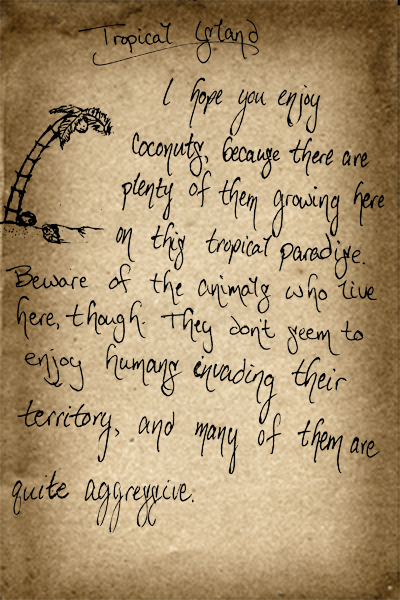 Tropical Island
I hope you enjoy
coconuts, because there are
plenty of them growing here
on this tropical paradise.
Beware of the animals who live
here, though. They don't seem to
enjoy humans invading their
territory, and many of them are
quite aggressive.